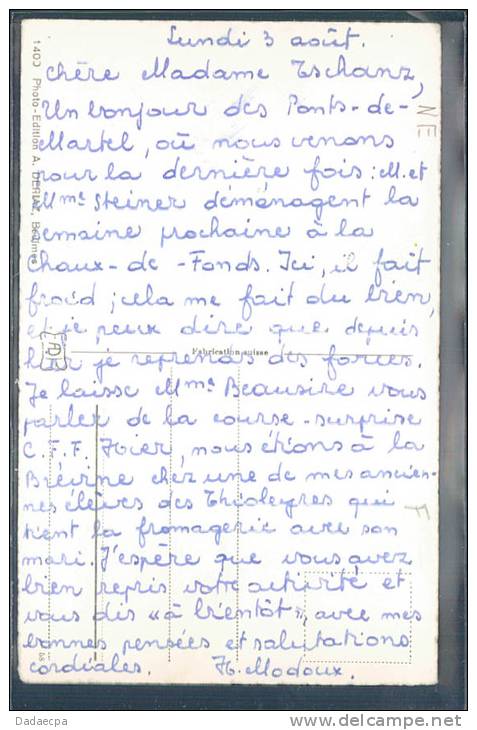 Lundi 3 août.
Chère Madame Tschanz,
Un bonjour des Ponts-de-
Martel, où nous venons
pour la dernière fois : M. et
Mme Steiner déménagent la
semaine prochaine à la
Chaux-de-Fonds. Ici, il fait
froid ; cela me fait du bien,
et je peux dire que depuis
hier je reprends des forces.
Je laisse Mme Beausire vous
parler de la course-surprise
C.F.F. Hier, nous étions à la
Brévine chez une de mes ancien-
nes élèves des Thioleyres qui
tient la fromagerie avec son
mari. J'espère que vous avez
bien repris votre activité et
vous dis « à bientôt », avec mes
bonnes pensées et salutations
cordiales. H. Modoux.
1403 Photo-Edition A. DERIAZ, Baulmes
Fabrication suisse
NE
Dadaecpa
www.delcampe.net